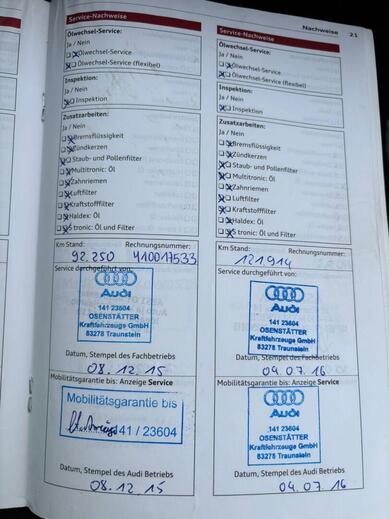 Nachweise 21
Service-Nachweise
Ölwechsel-Service:
Ja / Nein
Ölwechsel-Service
Ölwechsel-Service (flexibel)
Inspektion:
Ja / Nein
Inspektion
Zusatzarbeiten:
Ja / Nein
Bremsflüssigkeit
Zündkerzen
Staub- und Pollenfilter
Multitronic: Öl
Zahnriemen
Luftfilter
Kraftstofffilter
Haldex: Öl
S tronic: Öl und Filter
Km Stand: Rechnungsnummer:
92.250 410017533
Service durchgeführt von:
Audi
141 23604
OSENSTÄTTER
Kraftfahrzeuge GmbH
83278 Traunstein
Datum, Stempel des Fachbetriebs
08.12.15
Mobilitätsgarantie bis: Anzeige Service
Mobilitätsgarantie bis
41 / 23604
Datum, Stempel des Audi Betriebs
08.12.15
Service-Nachweise
Ölwechsel-Service:
Ja / Nein
Ölwechsel-Service
Ölwechsel-Service (flexibel)
Inspektion:
Ja / Nein
Inspektion
Zusatzarbeiten:
Ja / Nein
Bremsflüssigkeit
Zündkerzen
Staub- und Pollenfilter
Multitronic: Öl
Zahnriemen
Luftfilter
Kraftstofffilter
Haldex: Öl
S tronic: Öl und Filter
Km Stand: Rechnungsnummer:
121914
Service durchgeführt von:
Audi
141 23604
OSENSTÄTTER
Kraftfahrzeuge GmbH
83278 Traunstein
Datum, Stempel des Fachbetriebs
04.07.16
Mobilitätsgarantie bis: Anzeige Service
Audi
141 23604
OSENSTÄTTER
Kraftfahrzeuge GmbH
83278 Traunstein
Datum, Stempel des Audi Betriebs
04.07.16